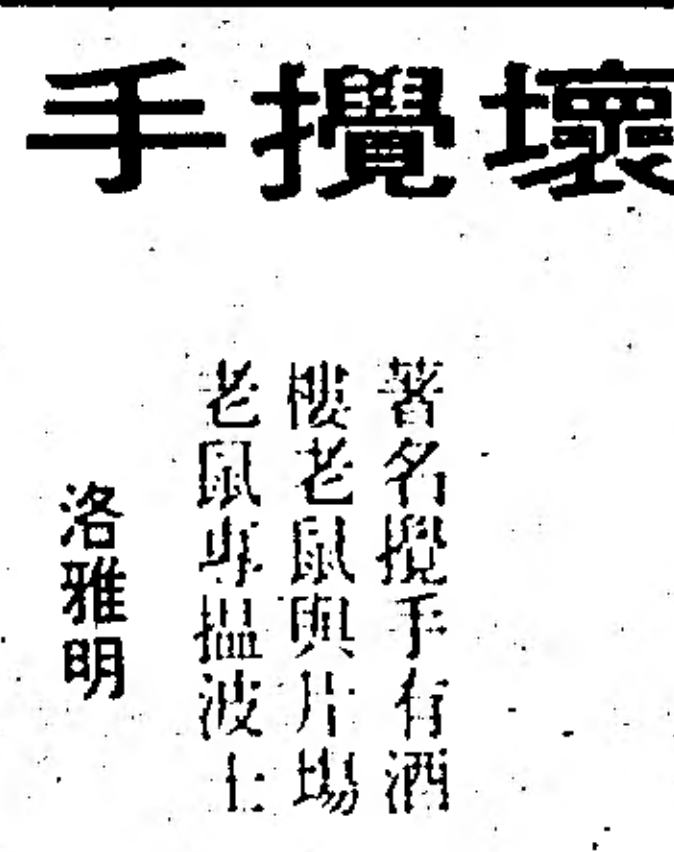 壞攪手
著名攪手有酒
樓老鼠與片場
老鼠專搵波士
洛雅明